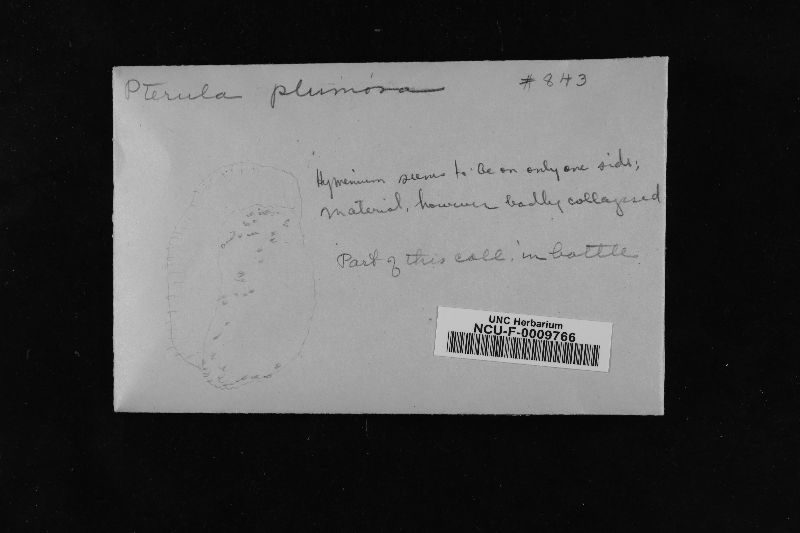 Pterula plumosa #843
Hymenium seems to be on only one side;
material, however badly collapsed
Part of this coll. in bottle.
UNC Herbarium
NCU-F-0009766